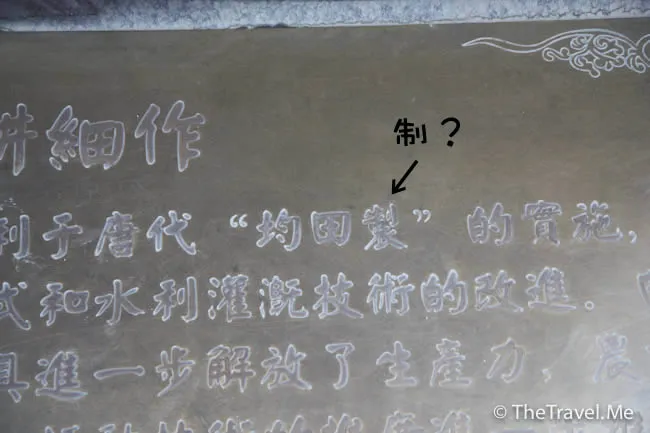 制？
細作
于唐代“均田製”的實施,
和水利灌溉技術的改進.
具進一步解放了生產力,
© TheTravel.Me